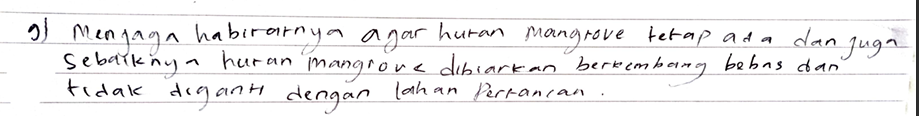 9) Menjaga habitatnya agar hutan mangrove tetap ada dan juga
Sebaiknya hutan mangrove dibiarkan berkembang bebas dan
tidak diganti dengan lahan Pertanian.